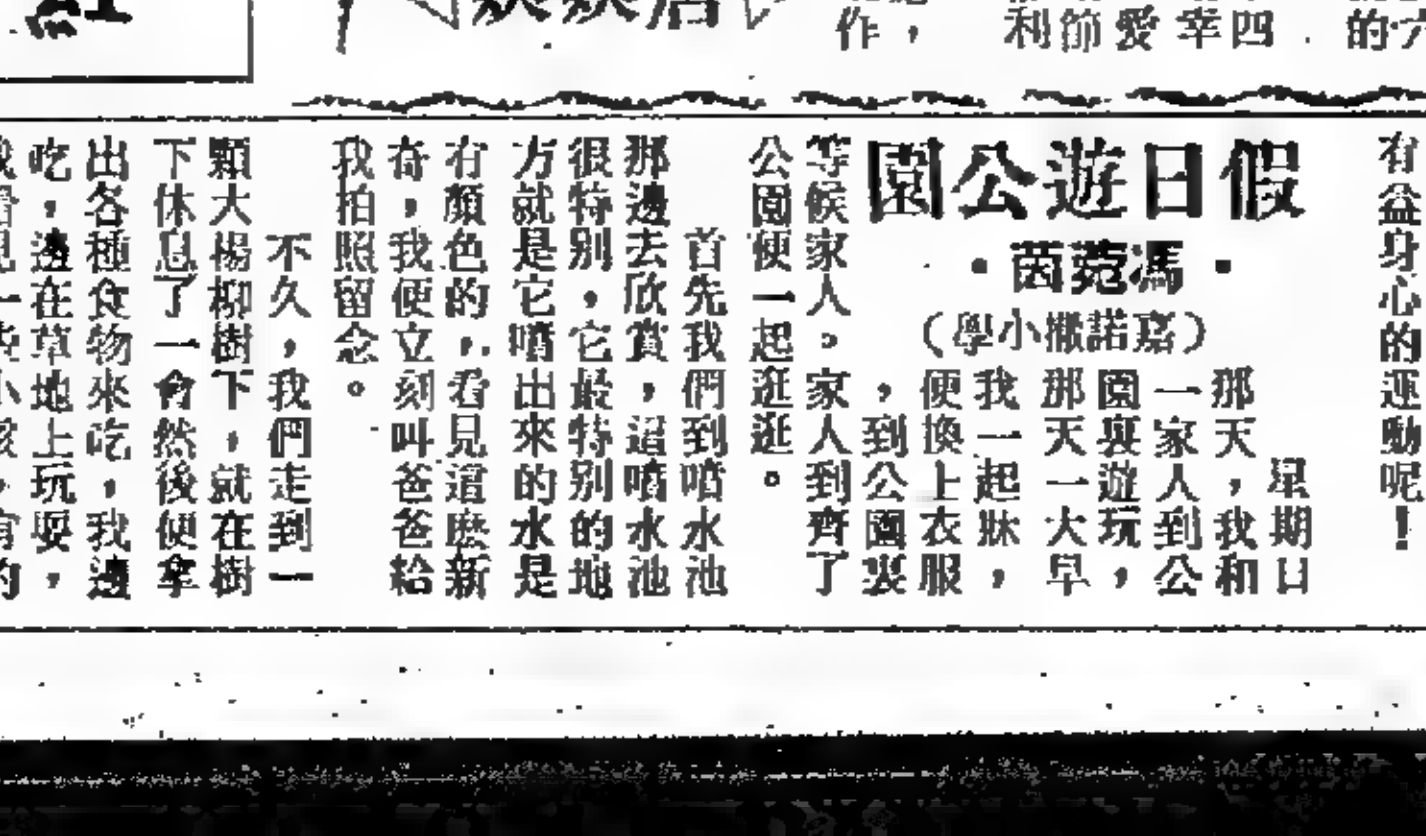 的
四
幸
愛
節
利
，
作
有益身心的運動呢！
假日遊公園
·馮菀茵·
（嘉諾撒小學）
星期日
那天，我和
一家人到公
園裏遊玩，
那天一大早
我一起牀，
便換上衣服
，到公園裏
等候家人。家人到齊了
公園便一起逛逛。
首先我們到噴水池
那邊去欣賞，這噴水池
很特别，它最特别的地
方就是它噴出來的水是
有顏色的，看見這麽新
奇，我便立刻叫爸爸給
我拍照留念。
不久，我們走到一
顆大楊柳樹下，就在樹
下休息了一會然後便拿
出各種食物來吃，我邊
吃，邊在草地上玩耍，